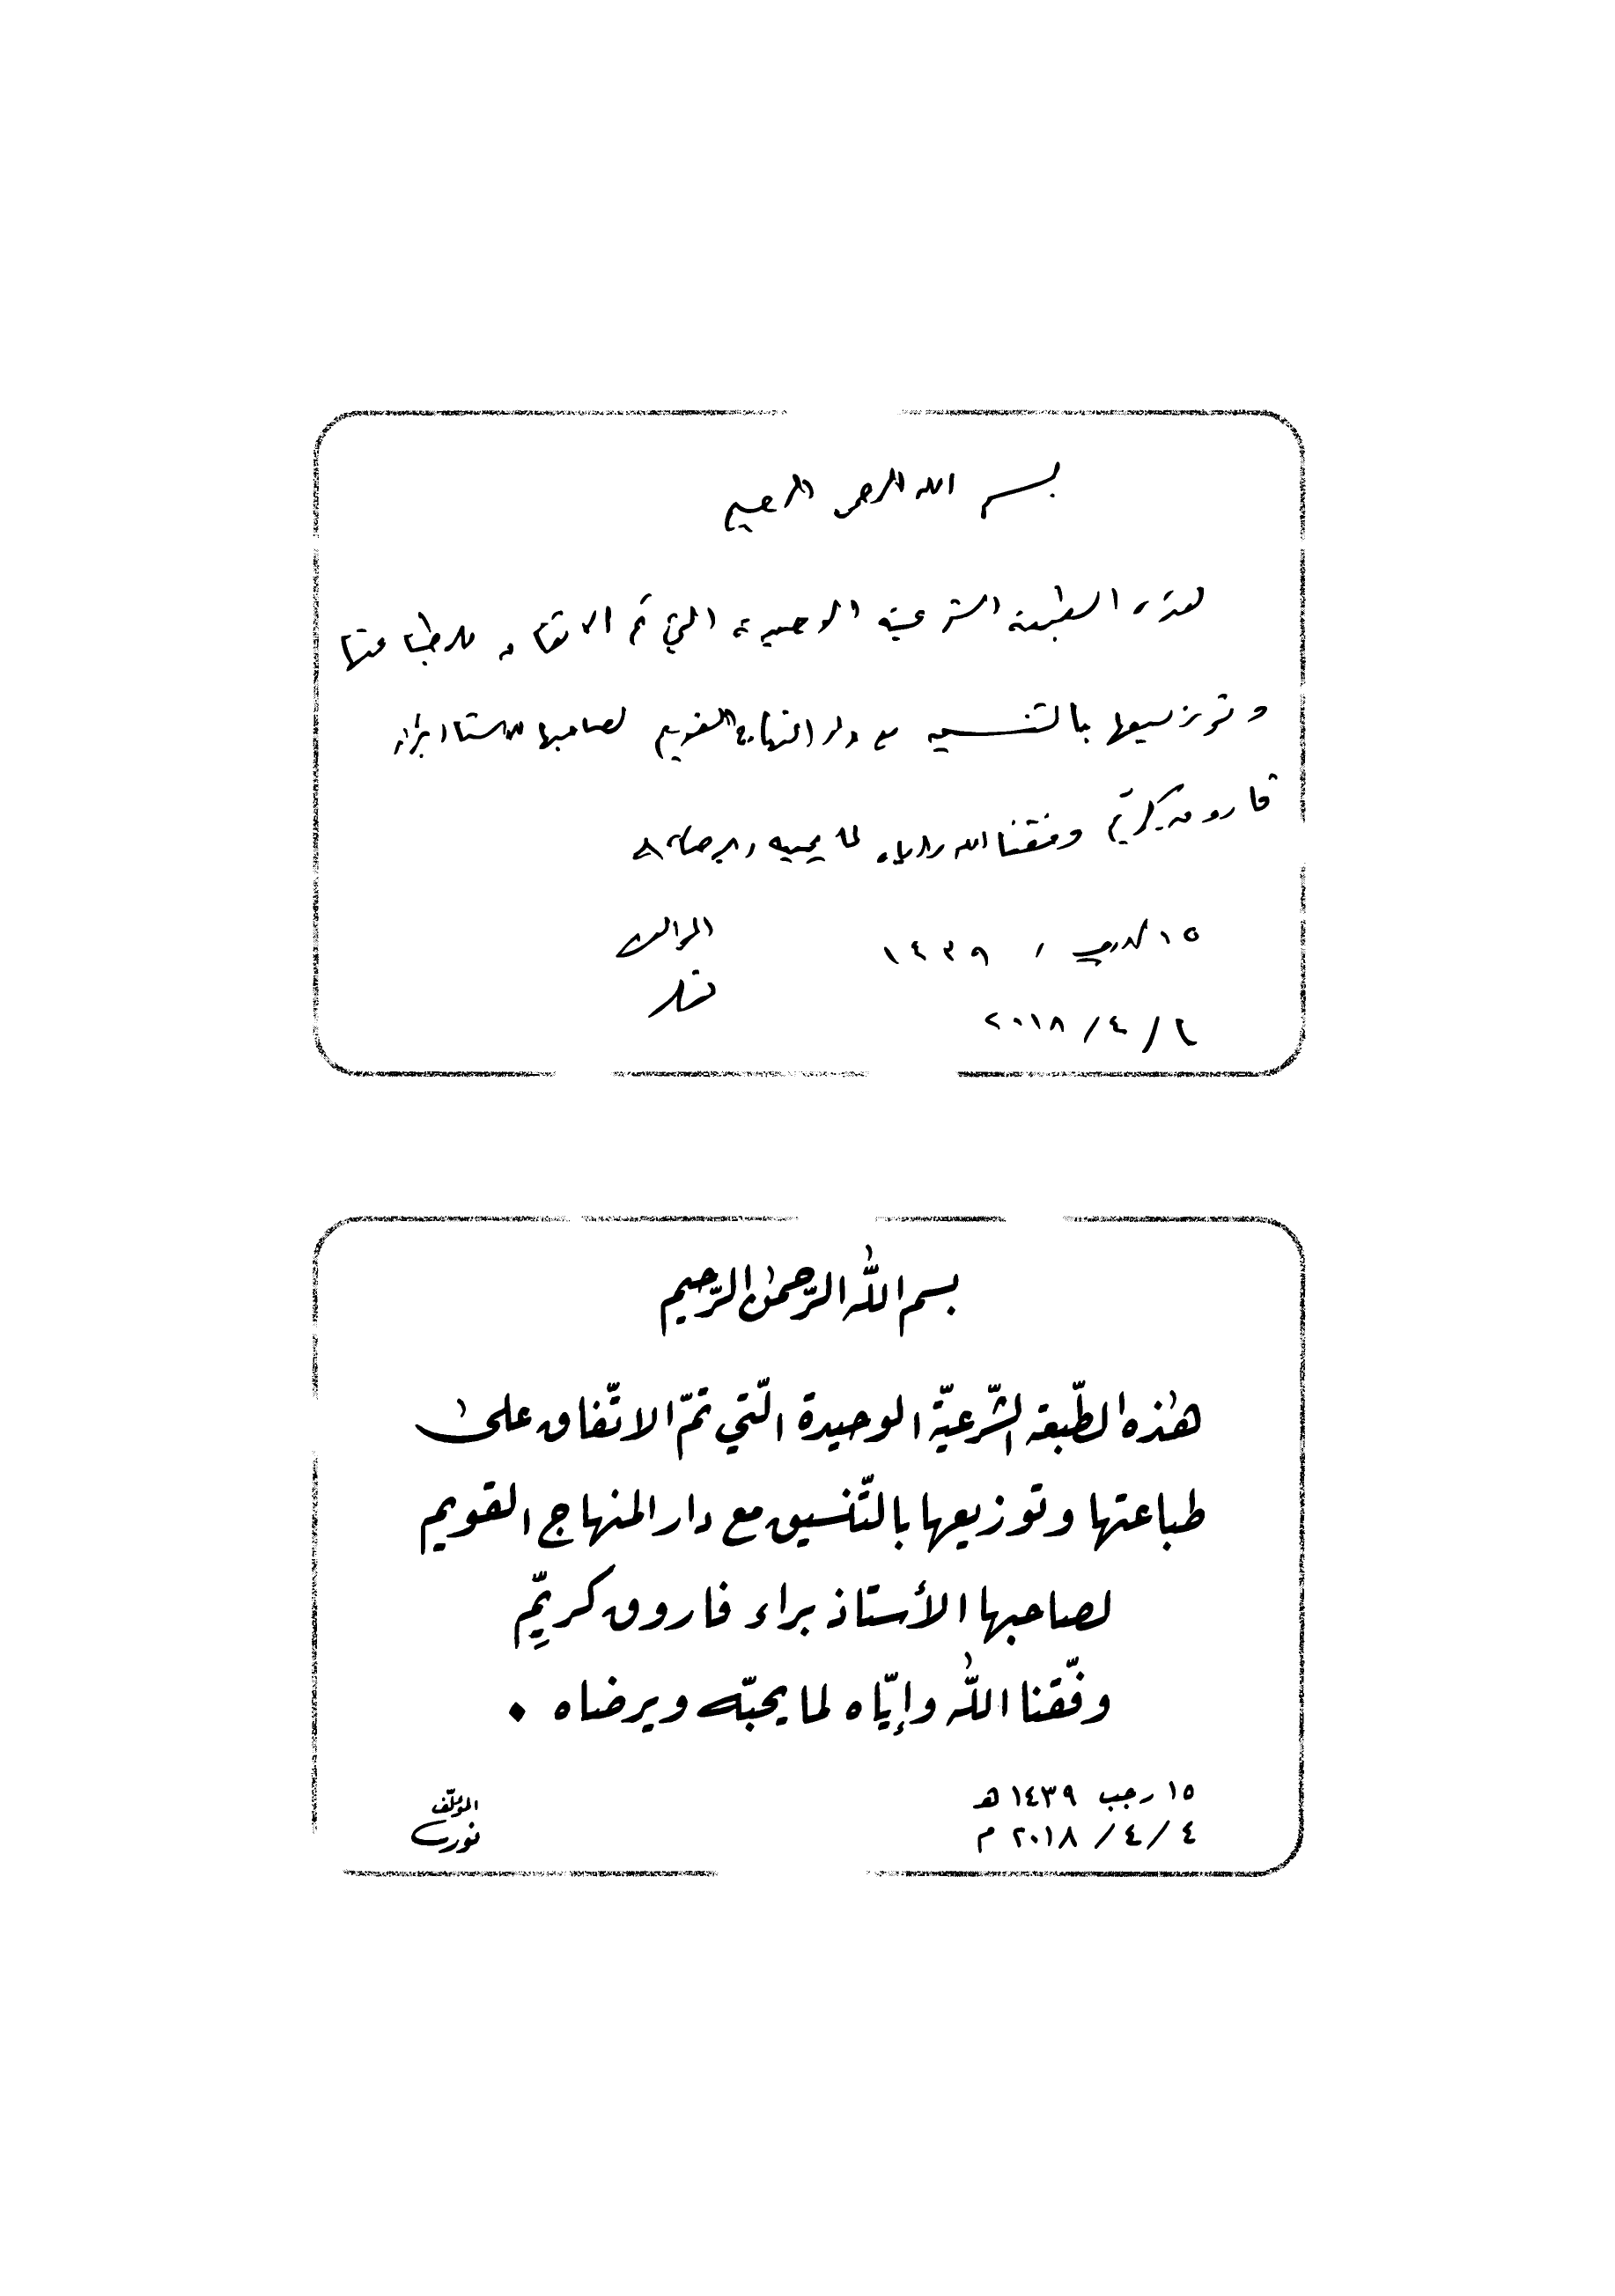 بسم الله الرحمن الرحيم
هذه الطبعة الشرعية الوحيدة التي تم الاتفاق على طباعتها
وتوزيعها بالتنسيق مع دار المنهاج القويم لصاحبها الأستاذ براء
فاروق كريم وفقنا الله وإياه لما يحبه ويرضاه
١٥ رجب / ١٤٣٩
المؤلف
/ ٤ / ٢٠١٨
بسم اللّٰه الرّحمٰن الرّحيم
هٰذه الطّبعة الشّرعيّة الوحيدة الّتي تمّ الاتّفاق علىٰ
طباعتها وتوزيعها بالتّنسيق مع دار المنهاج القويم
لصاحبها الأستاذ براء فاروق كريِّم
وفّقنا اللّٰه وإيّاه لما يحبّه ويرضاه .
١٥ رجب ١٤٣٩ هـ
المؤلّف
٤ / ٤ / ٢٠١٨ م